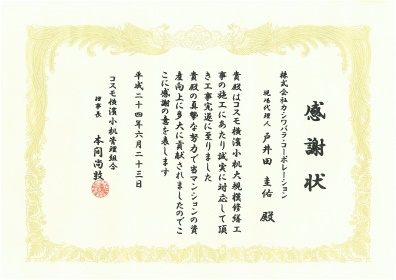 感謝状
株式会社カシワバラ・コーポレーション
現場代理人 戸井田 圭佑 殿
貴殿はコスモ横濱小机大規模修繕工
事の施工にあたり誠実に対応して頂
き工事完遂に至りました
貴殿の真摯な努力で当マンションの資
産向上に多大に貢献されましたのでこ
こに感謝の意を表します
平成二十四年六月二十三日
コスモ横濱小机管理組合
理事長 本間尚敦